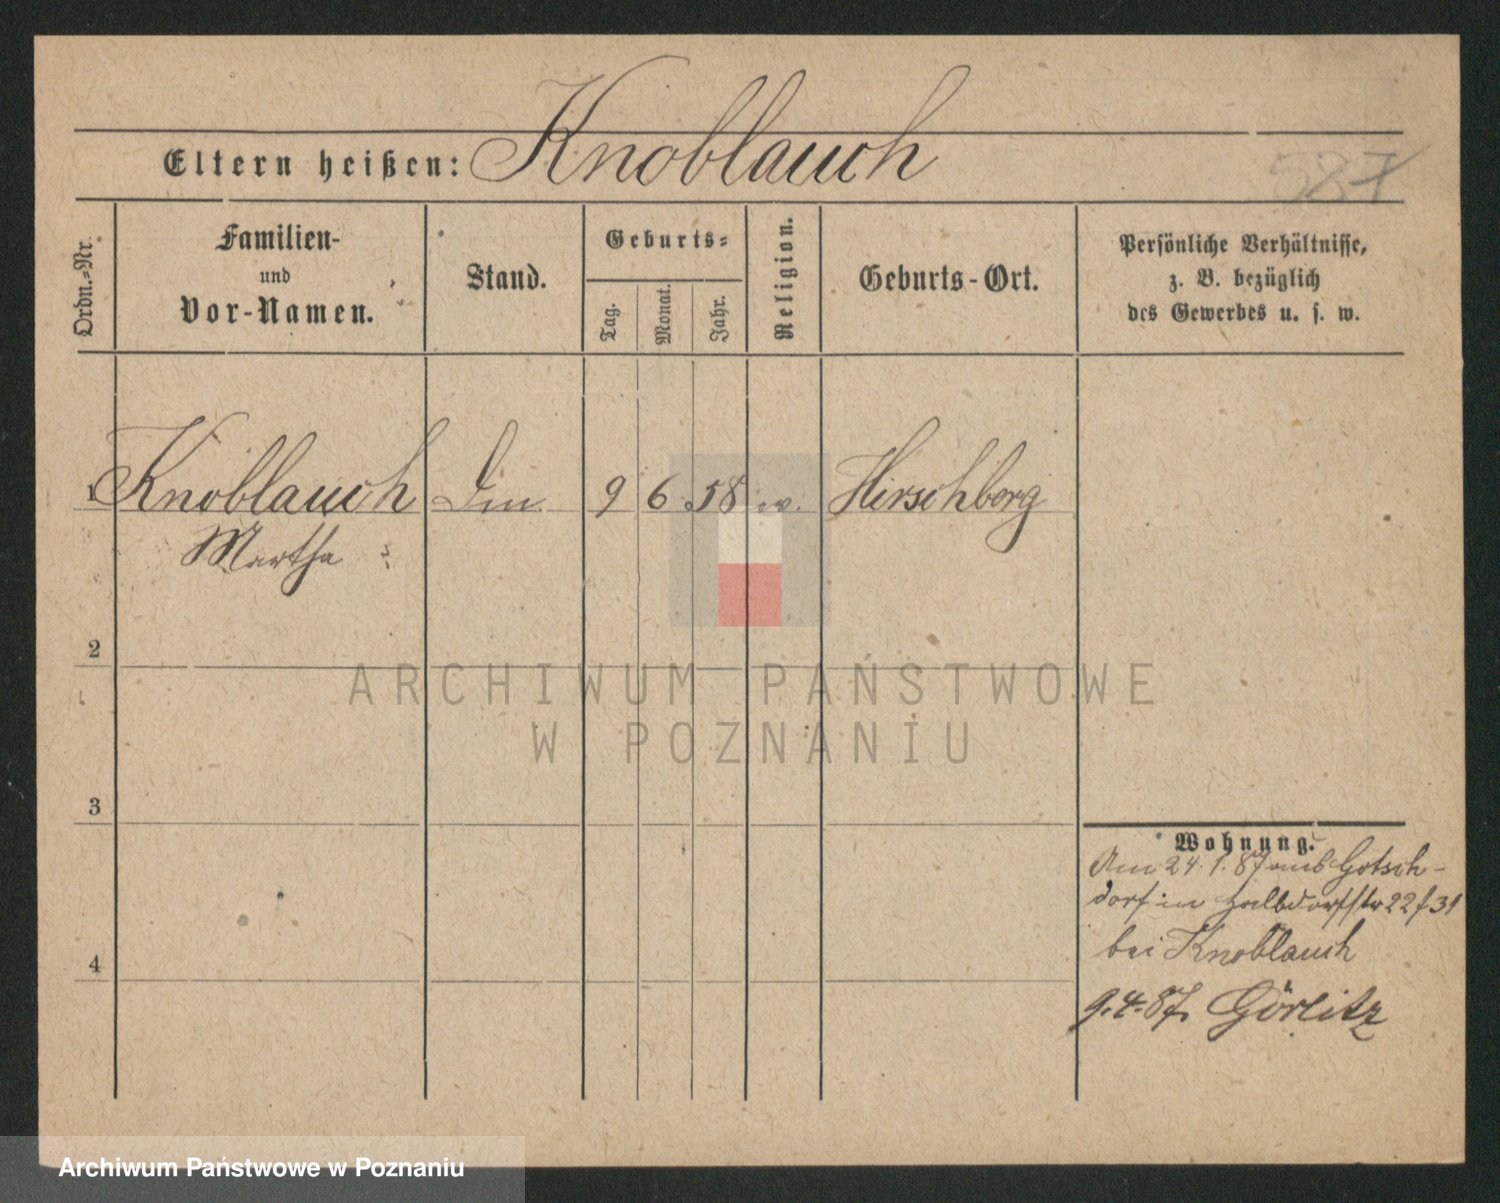 Eltern heißen: Knoblauch
587
Ordn.-Nr.
Familien-
und
Vor-Namen.
Stand.
Geburts-
Tag.
Monat.
Jahr.
Religion.
Geburts-Ort.
Persönliche Verhältnisse,
z. B. bezüglich
des Gewerbes u. s. w.
1 Knoblauch 9 6 58 Hirschberg
Martha
2
3
4
Wohnung.
Am 24.1.87 aus Gotsch-
dorf in Halbdorfstr 22 f 31
bei Knoblauch
9.4.87. Görlitz
ARCHIWUM PAŃSTWOWE
W POZNANIU
Archiwum Państwowe w Poznaniu